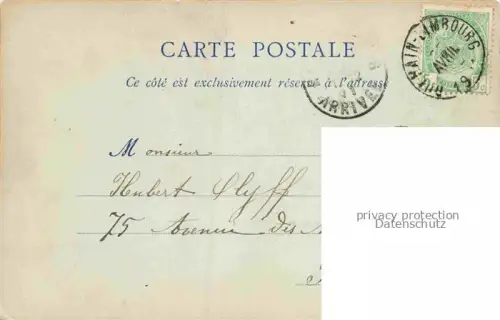 CARTE POSTALE
Ce côté est exclusivement réservé à l'adresse
ARRIVÉE
LIMBOURG
AVRIL
Monsieur
Hubert
75 Avenue des
privacy protection
Datenschutz